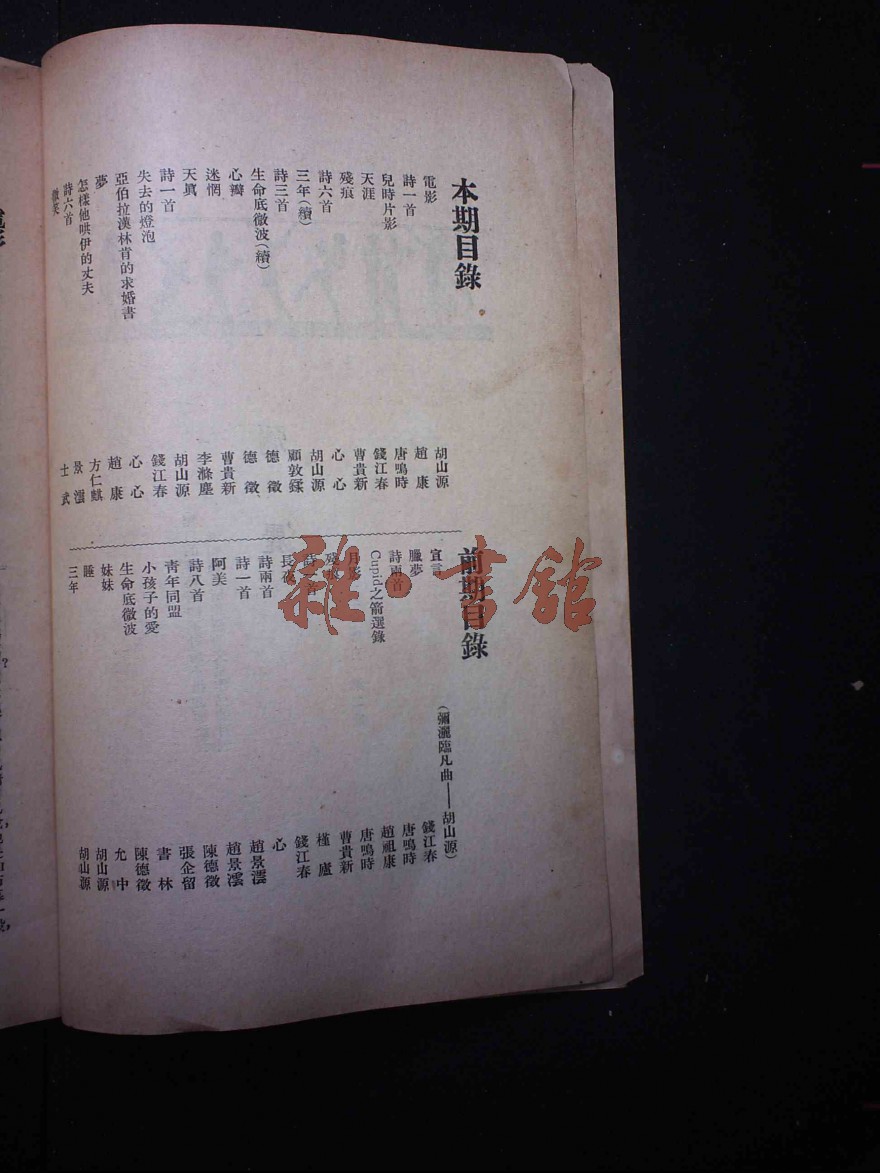 本期目錄
電影 胡山源
詩一首 趙康
兒時片影 唐鳴時
天涯 錢江春
殘痕 曹貴新
詩六首 心心
三年(續) 胡山源
詩三首 顧敦鍒
生命底微波(續) 德徵
心瓣 德徵
迷惘 曹貴新
天眞 李滌塵
詩一首 胡山源
失去的燈泡 錢江春
亞伯拉漢林肯的求婚書 心心
夢 趙康
怎樣他哄伊的丈夫 方仁麒
詩六首 景澐
微笑 士武
前期目錄
宣言 (彌灑臨凡曲——胡山源)
臘夢 錢江春
詩兩首 唐鳴時
Cupid之箭選錄 趙祖康
月影 唐鳴時
曹貴新
槿廬
長夜 錢江春
詩兩首 心
詩一首 趙景澐
阿美 趙景澐
詩八首 陳德徵
靑年同盟 張企留
小孩子的愛 書林
生命底微波 陳德徵
妹妹 允中
睡 胡山源
三年 胡山源
雜·書館